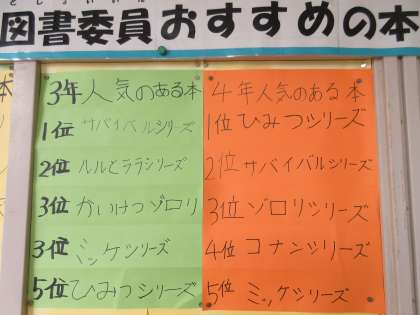 図書委員おすすめの本
3年人気のある本
1位 サバイバルシリーズ
2位 ルルとララシリーズ
3位 かいけつゾロリ
3位 ミッケシリーズ
5位 ひみつシリーズ
4年人気のある本
1位 ひみつシリーズ
2位 サバイバルシリーズ
3位 ゾロリシリーズ
4位 コナンシリーズ
5位 ミッケシリーズ